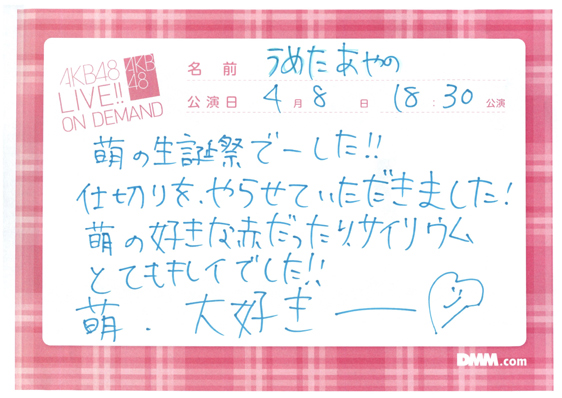 AKB48
LIVE!!
ON DEMAND
AKB
48
名前 うめたあやの
公演日 4月8日 18:30公演
萌の生誕祭でーした!!
仕切りを、やらせていただきました!
萌の好きな赤だったり、サイリウム
とてもキレイでした!!
萌、大好きー
DMM.com